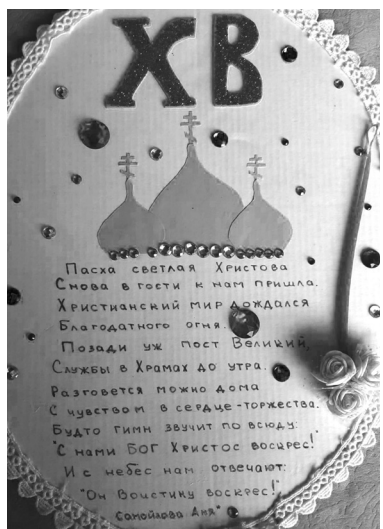 ХВ
Пасха светлая Христова
Снова в гости к нам пришла.
Христианский мир дождался
Благодатного огня.
Позади уж пост Великий,
Службы в Храмах до утра.
Разговется можно дома
С чувством в сердце-торжества.
Будто гимн звучит по всюду:
"С нами БОГ Христос воскрес!"
И с небес нам отвечают:
"Он Воистину воскрес!"
Самойлова Аня